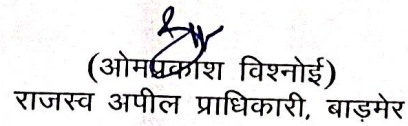 (ओमप्रकाश विश्नोई)
राजस्व अपील प्राधिकारी, बाड़मेर